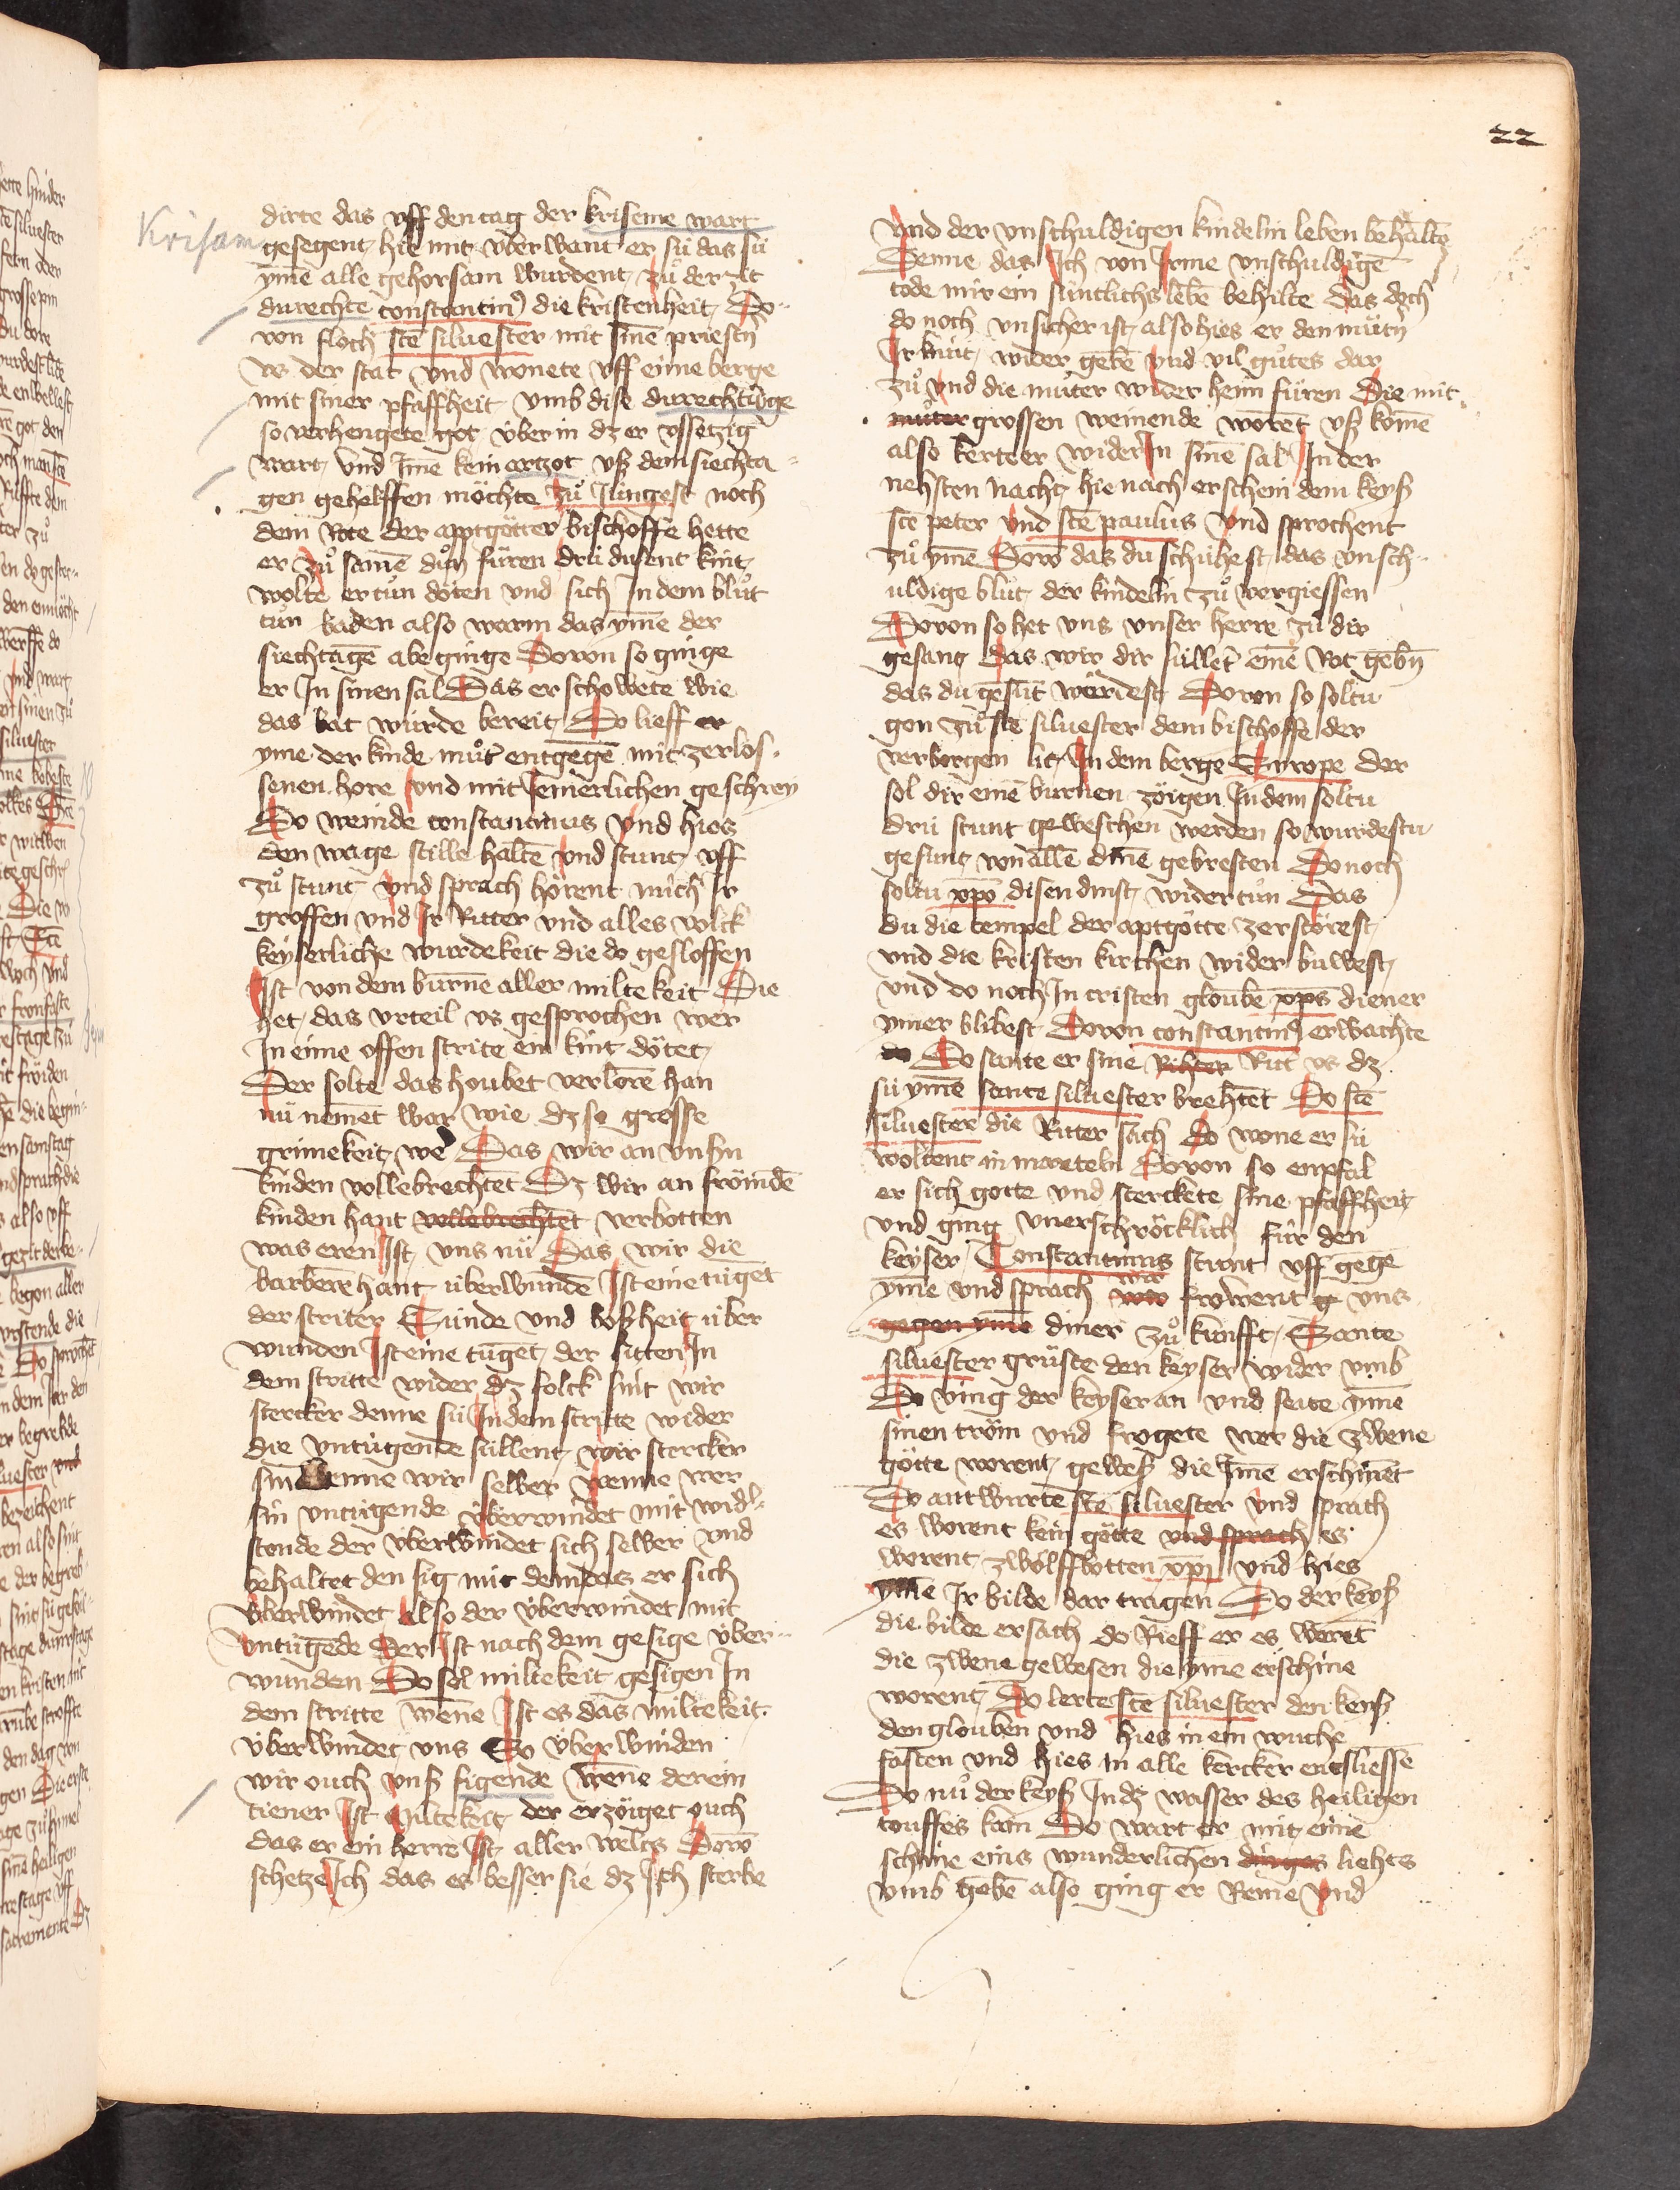 22
Krisam
dirte das vff den tag der kriseme wart
gesegent hie mit vberwant er sü das sü
ymē alle gehorsam wurdent zuͦ der zit
durechte constantinꝰ die kristenheit Do
von floch stē siluester mit sinē priestn̄
vs der stat vnd wonete vff eime berge
mit siner pfaffheit vmb dise durechtūge
so verhengete got über in dz er vssetzig
wart vnd Ime kein artzot vß dem siechta
gen gehelffen möchte zuͦ Jüngest noch
dem Rote der apptgötter bischoffe hette
er zuͦ samē duͦn füren drü dusent kint
wolte er tuͦn döten vnd sich In dem bluͦt
tuͦn baden also warm das ymē der
siechtagē abe ginge Dovon so ginge
er In sinen sal Das er schowete wie
das bat würde bereit Do lieff er
yme der kinde muͦt entgegē mit zerlos
senen hore vnd mit Jemerlichen geschrey
Do weinde constantinus vnd hies
den wage stille haltē vnd stunt vff
zuͦ stunt vnd sprach hörent mich Ir
groffen vnd Ir Ritter vnd alles volck
keyserliche wurdekeit die do gesloffen
Ist von dem burnē aller miltekeit Die
het das vrteil vs gesprochen wer
In eime offen strite ein kint dötet
Der solte das houbet verlorē han
nü nemēt war wie dz so grosse
grimekeit we Das wir an vnsn
kinden vollebrechtēt Dz wir an frömdē
kinden hant vollebrechtet verbotten
was eren Ist vns nü Das wir die
barberē hant überwundē Ist eine tüget
der striter Sünde vnd boßheit über
wunden Ist eine tūget der sitten In
dem stritte wider dz folck sint wir
stercker denne sü In dem stritte wider
die vntügende süllent wir stercker
sin denne wir selber wenne wer
sin vntugende überwindet mit wid
stonde der überwindet sich selber vnd
behaltet den sig mit dem das er sich
überwindet also der überwindet mit
vntügēde Der Ist nach dem gesige über
wunden Do sol miltekeit gesigen In
dem stritte wēne Ist es das miltekeit
überwindet vns So überwinden
wir ouch vnß figende wēne der ein
diener Ist miltekeit der erzöiget ouch
das er ein herre Ist aller welts Dovō
schetze Ich das es besser sie dz Ich sterbe
vnd der vnschuldigen kindelin leben behaltē
Denne das Ich von Irme vnschuldigē
tode mir ein süntlichs lebē behilte das doch
do noch vnsicher ist also hies er den mütn̄
Ir kint wider gebē vnd vil guͦtes dar
zuͦ vnd die muͦter wider heim füren Die mit
muͦter grossen weinende worēt vß komē
also kerte er wider In sinē sal In der
nehsten nacht hie nach erschein dem keyß
stē peter vnd stē paulus vnd sprochent
zuͦ ymē Dovō das du schühest das vnsch
uldige bluͦt der kindelin zuͦ vergiessen
Dovon so het vns vnser herre zuͦ dir
gesant das wir dir süllet einē Rot gebn̄
das du gesūt werdest Dovon so soltu
gon zuͦ ste siluester dem bischoffe der
verborgen lit In dem berge Sirope der
sol dir einē burnen zöigen In dem soltu
drü stunt geweschen werden so wurdestu
gesunt von allē dinē gebresten Donoch
soltu xpo disen dinst wider tuͦn Das
du die tempel der aptgötte zerstörest
vnd die kristen kirchen wider buwest
vnd do noch In cristen gloubē xps diener
ymer blibest Dovon constantinꝰ erwachte
do Do sante er sine Richter Ritt vs dz
sü ymē sante siluester brehtēt Do stē
siluester die Ritter sach do wone er sü
woltent in marteln Dovon so enpfal
er sich gotte vnd sterckete sine pfaffheit
vnd ging vnerschröcklich für den
keyser Constantinus stunt vff gegē
ymē vnd sprach wir frowent vns
gegen ymē diner zuͦ kunfft Sante
siluester grüste den keyser wider vmb
Do ving der keyser an vnd seite ymē
sinen tröm vnd frogete wer die zwene
götte worent geweß die Imē erschinēt
Do antwurte ste siluester vnd sprach
es worent kein götte vnd sprach es
worent zwölffbotten xpi vnd hies
ymē Ir bilde dar tragen Do der keyß
die bilde ersach do Rieff er es werēt
die zwene gewesen die yme erschine
worent Do lerte stē siluester den keyß
den glouben vnd hies in ein wuche
fasten vnd hies in alle kercker entsliessē
Do nuͦ der keyß In dz wasser des heiligen
touffes kam Do wart er mit eime
schine eins wunderlichen dinges liehtes
vmb gebē also ging er Reine vnd